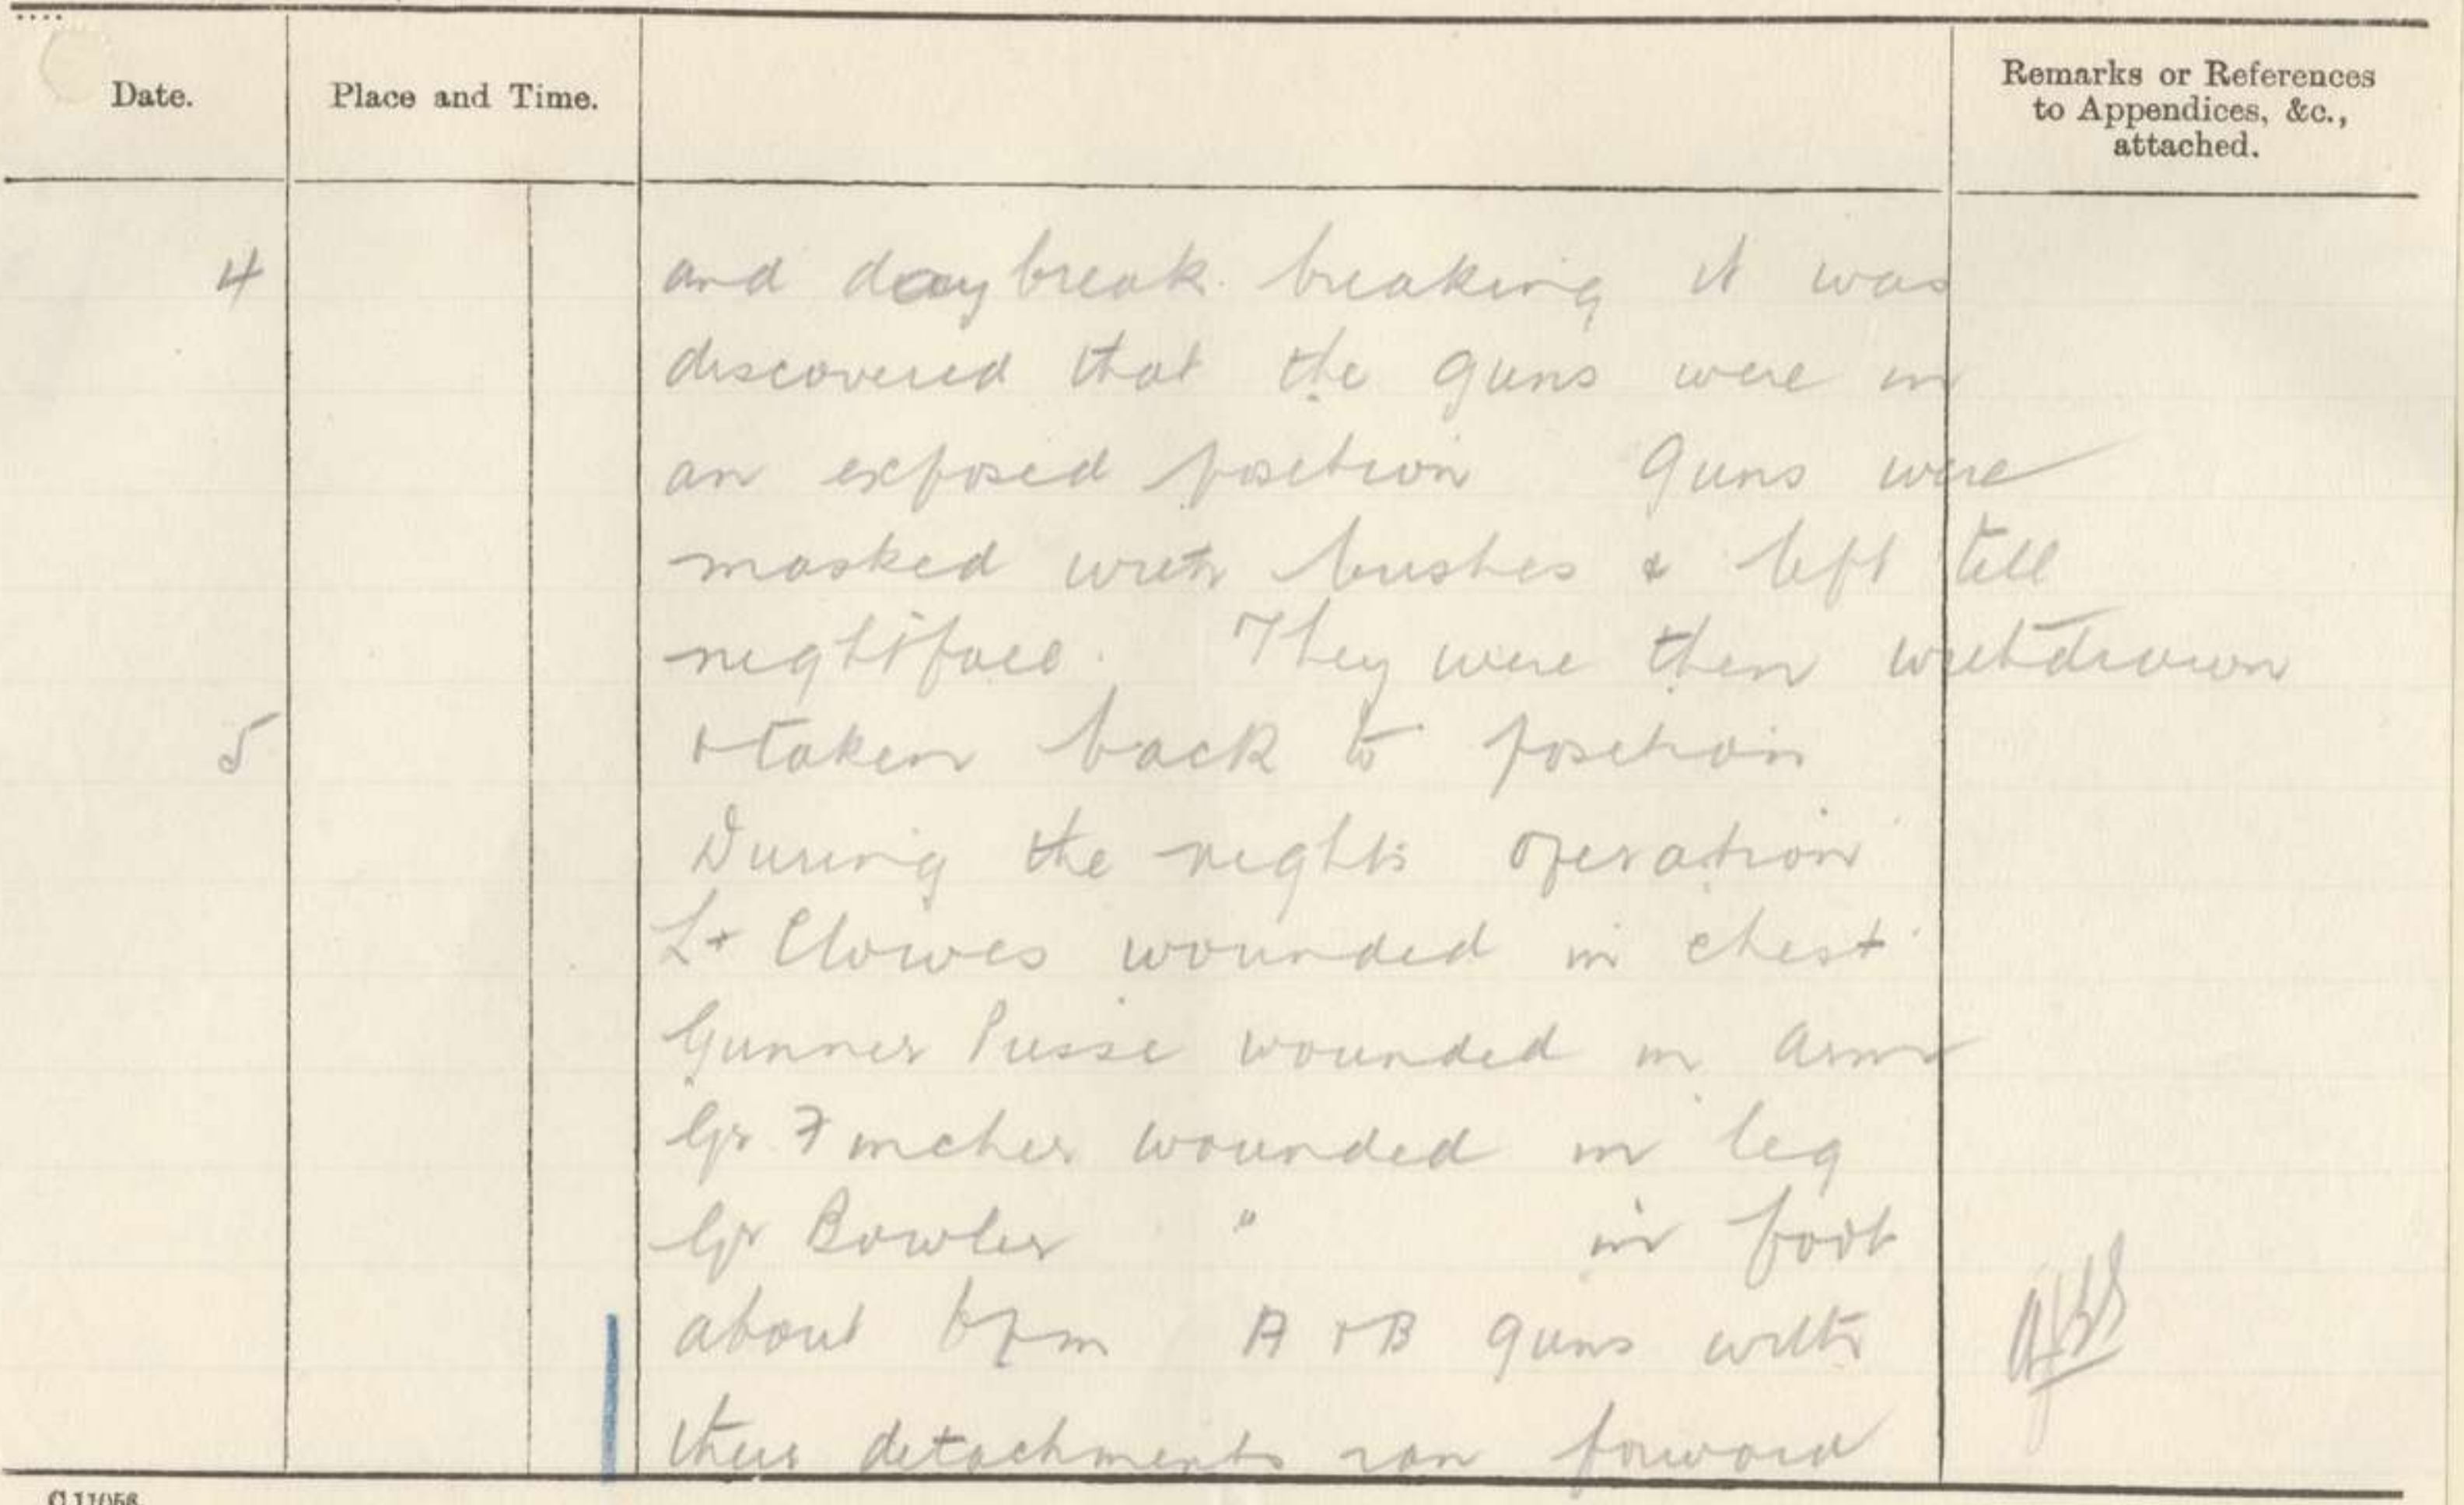 Date.
Place and Time.
Remarks or References
to Appendices, &c.,
attached.
4
and daybreak breaking it was
discovered that the guns were in
an exposed position Guns were
masked with bushes & left till
nightfall. They were then withdrawn
5
& taken back to position
During the nights operation
Lt Clowes wounded in chest
Gunner Pusse wounded in arm
Gr Fincher wounded in leg
Gr Bowler " in foot
about 6pm A & B guns with
their detachments ran forward
C.11056